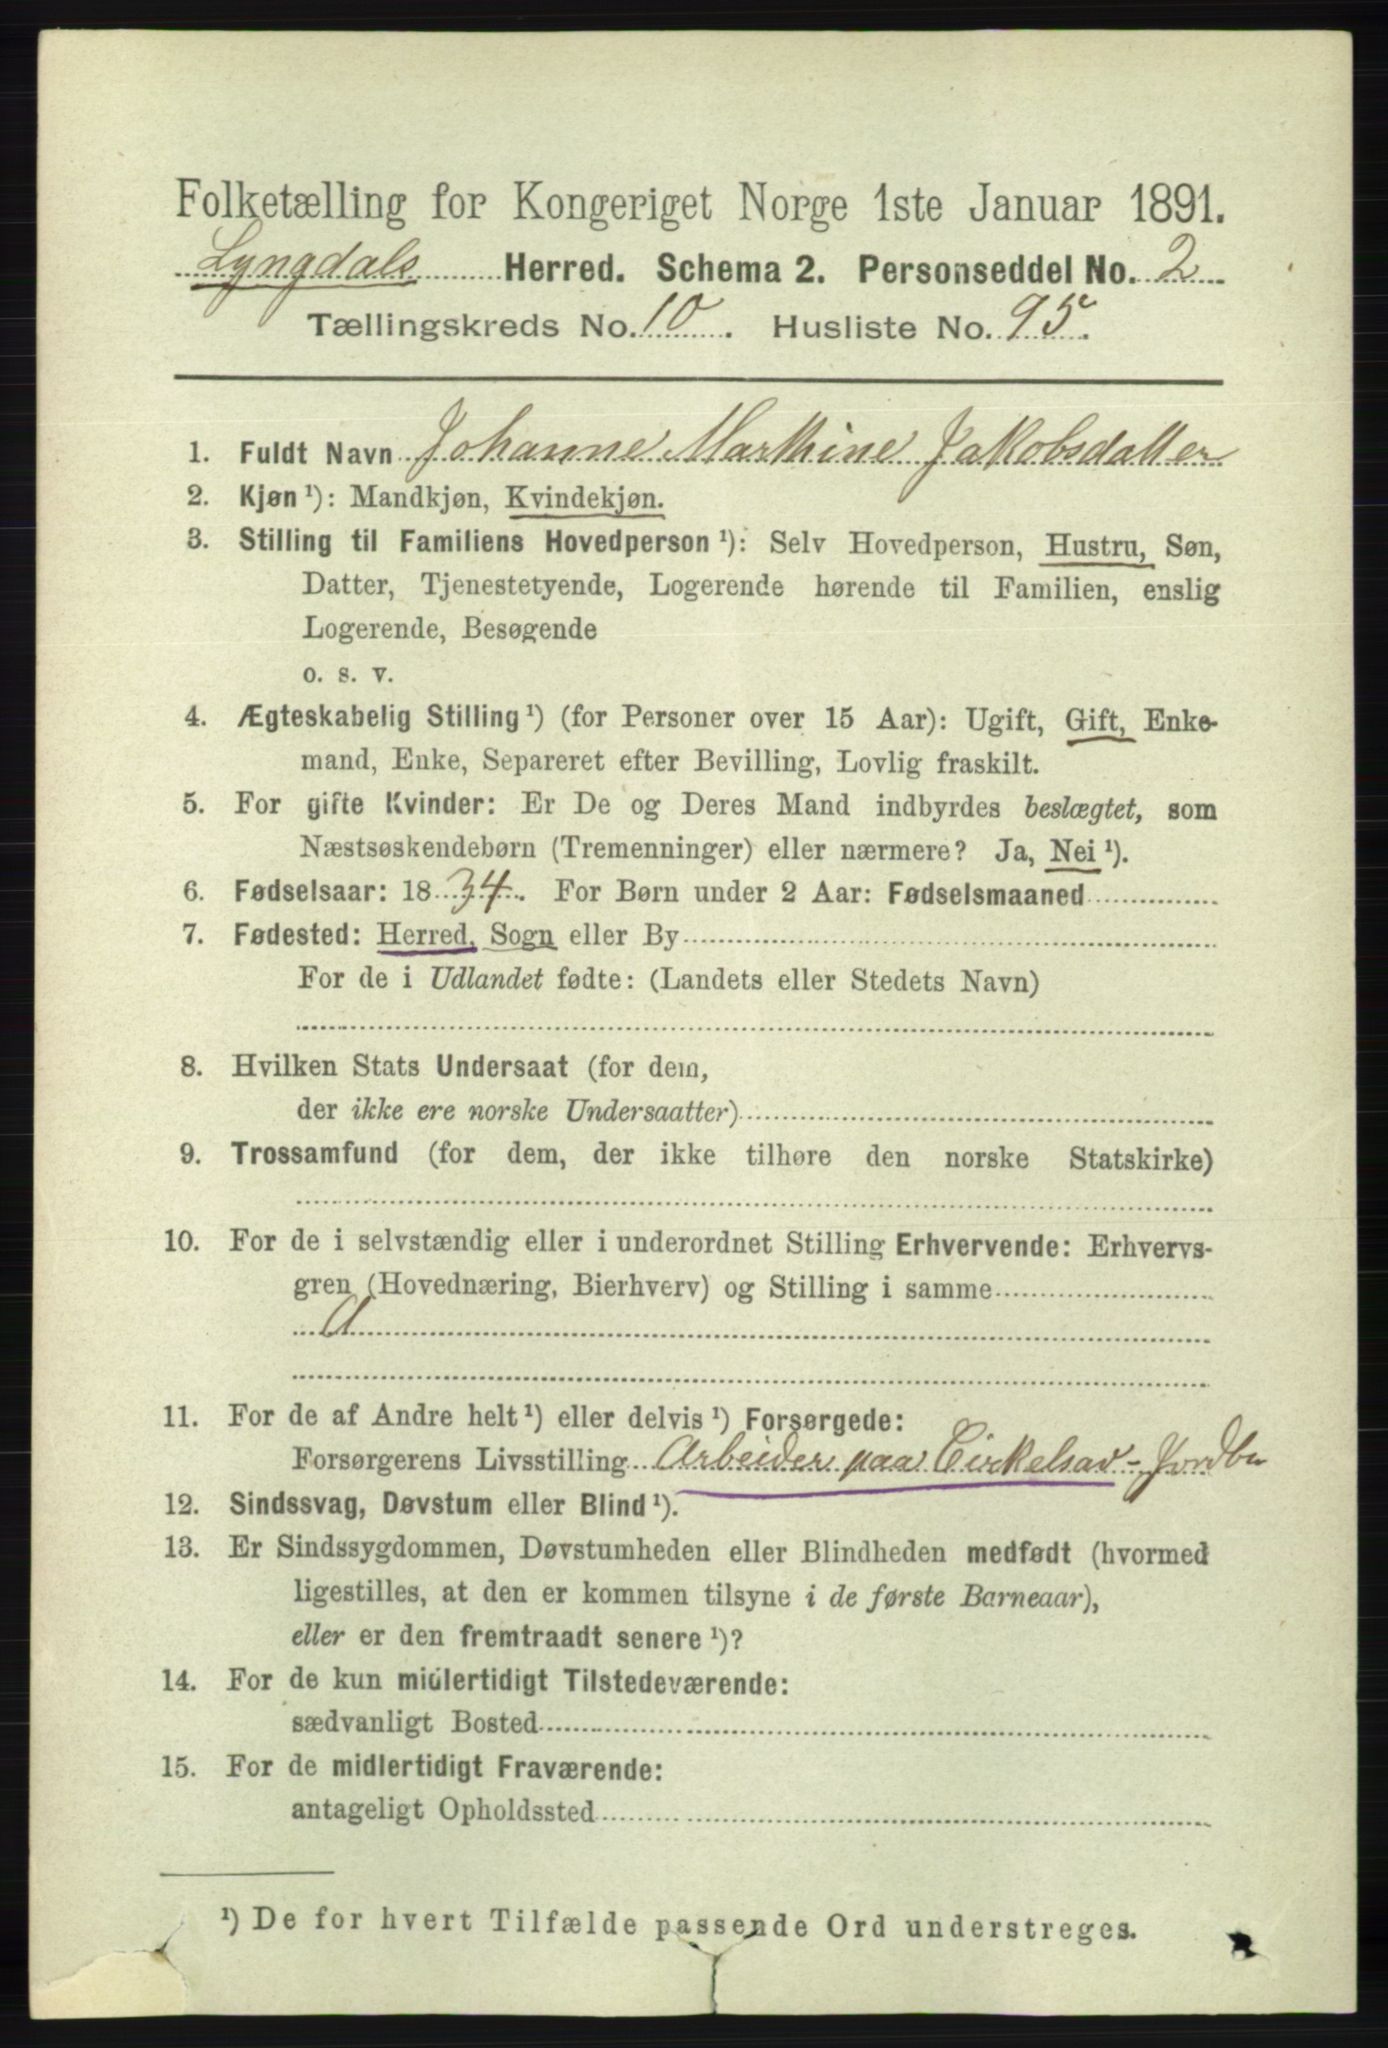 Folketælling for Kongeriget Norge 1ste Januar 1891.
Lyngdals Herred. Schema 2. Personseddel No. 2
Tællingskreds No. 10. Husliste No. 95.
1. Fuldt Navn Johanne Marthine Jakobsdatter
2. Kjøn ¹): Mandkjøn, Kvindekjøn.
3. Stilling til Familiens Hovedperson ¹): Selv Hovedperson, Hustru, Søn,
Datter, Tjenestetyende, Logerende hørende til Familien, enslig
Logerende, Besøgende
o. s. v.
4. Ægteskabelig Stilling ¹) (for Personer over 15 Aar): Ugift, Gift, Enke-
mand, Enke, Separeret efter Bevilling, Lovlig fraskilt.
5. For gifte Kvinder: Er De og Deres Mand indbyrdes beslægtet, som
Næstsøskendebørn (Tremenninger) eller nærmere? Ja, Nei ¹).
6. Fødselsaar: 1834. For Børn under 2 Aar: Fødselsmaaned
7. Fødested: Herred, Sogn eller By
For de i Udlandet fødte: (Landets eller Stedets Navn)
8. Hvilken Stats Undersaat (for dem,
der ikke ere norske Undersaatter)
9. Trossamfund (for dem, der ikke tilhøre den norske Statskirke)
10. For de i selvstændig eller i underordnet Stilling Erhvervende: Erhvervs-
gren (Hovednæring, Bierhverv) og Stilling i samme
a
11. For de af Andre helt ¹) eller delvis ¹) Forsørgede:
Forsørgerens Livsstilling Arbeider paa Cirkelsav - Jordbr
12. Sindssvag, Døvstum eller Blind ¹).
13. Er Sindssygdommen, Døvstumheden eller Blindheden medfødt (hvormed
ligestilles, at den er kommen tilsyne i de første Barneaar),
eller er den fremtraadt senere ¹)?
14. For de kun midlertidigt Tilstedeværende:
sædvanligt Bosted
15. For de midlertidigt Fraværende:
antageligt Opholdssted
¹) De for hvert Tilfælde passende Ord understreges.